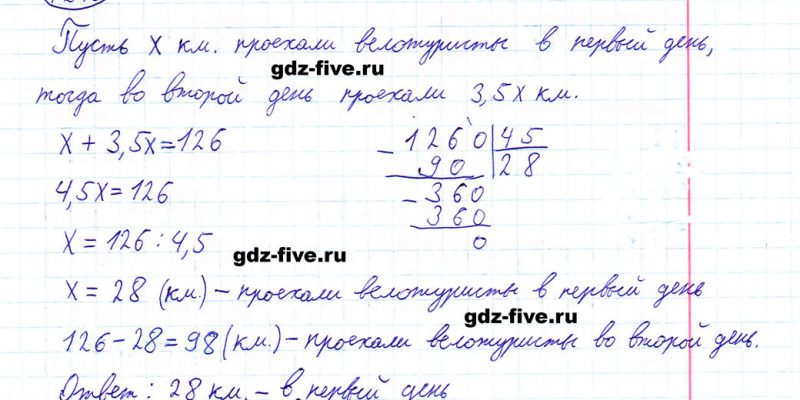 Пусть х км. проехали велотуристы в первый день,
gdz-five.ru
тогда во второй день проехали 3,5х км.
х + 3,5х = 126
4,5х = 126
х = 126 : 4,5
1260 45
- 90 28
- 360
360
0
gdz-five.ru
х = 28 (км.) - проехали велотуристы в первый день
gdz-five.ru
126 - 28 = 98 (км.) - проехали велотуристы во второй день.
Ответ: 28 км. - в первый день